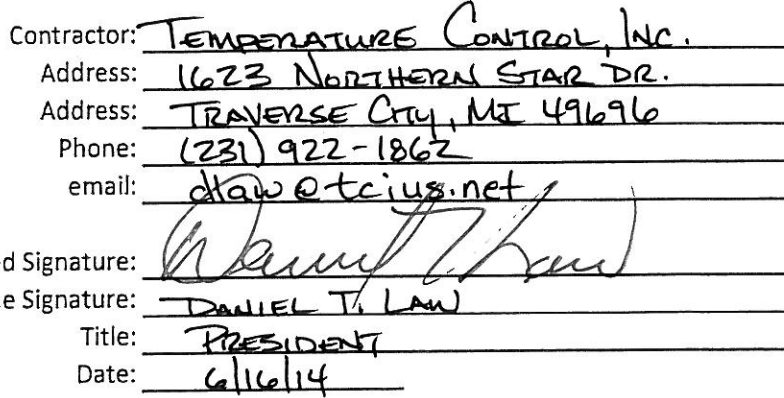 Contractor: TEMPERATURE CONTROL, INC.
Address: 1623 NORTHERN STAR DR.
Address: TRAVERSE CITY, MI 49696
Phone: (231) 922-1862
email: dlaw@tcius.net
d Signature: Daniel T. Law
e Signature: DANIEL T. LAW
Title: PRESIDENT
Date: 6/16/14